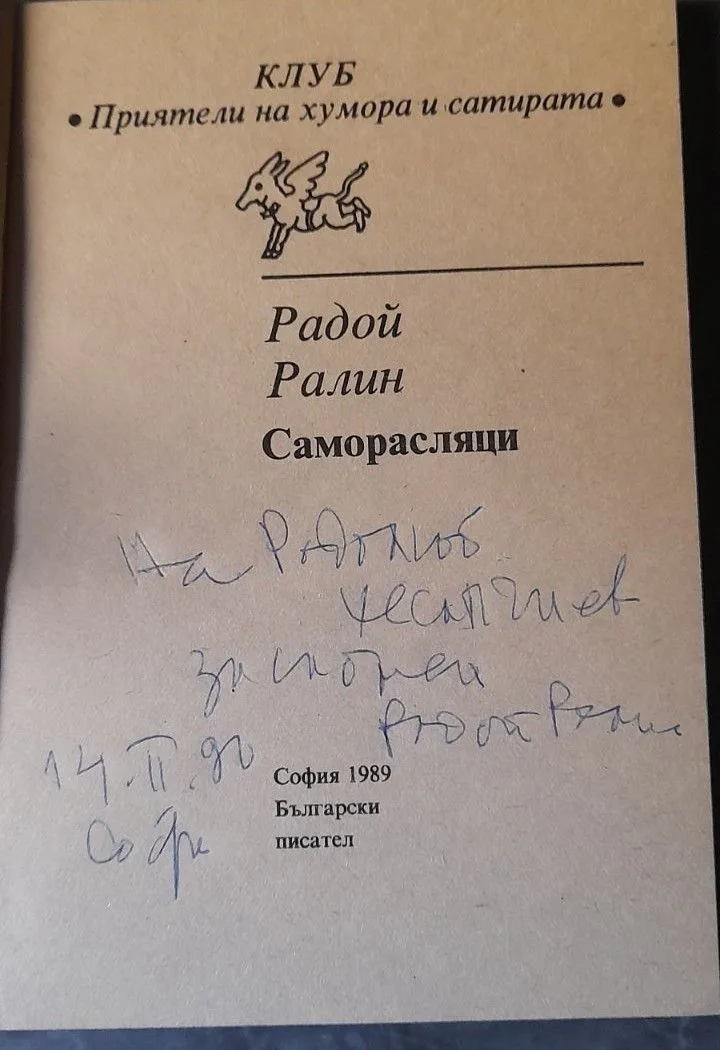 КЛУБ
• Приятели на хумора и сатирата •
Радой
Ралин
Саморасляци
На Радослав
Хесапчиев
за спомен
Радой Ралин
14.II.90
София 1989
Български
писател
Софи